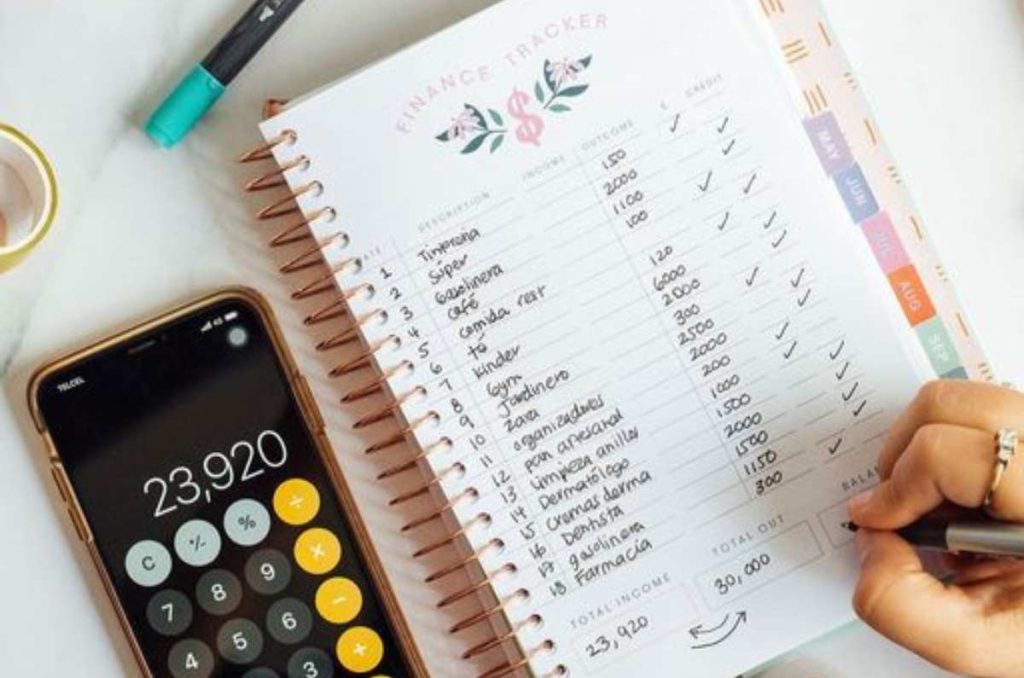 FINANCE TRACKER
$
DATE DESCRIPTION INCOME OUTCOME £ CREDIT
1 150
2 Súper 2000
3 Gasolinera 1100
4 café 100
5 comida rest
6 120
7 Kinder 6000
8 Gym 2000
9 Jardinero 300
10 Zara 2500
11 organizadores 2000
12 pan artesanal 200
13 Limpieza anillos 1000
14 Dermatólogo 1500
15 Cremas derma 2000
16 Dentista 1500
17 gasolinera 1150
18 Farmacía 300
TOTAL INCOME
23,920
TOTAL OUT
30,000
MAY
JUN
JUL
AUG
SEP
TELCEL 4G
23,920
C % ÷
7 8 9 ×
4 5 6 −
3 +